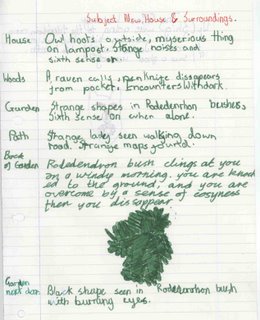 Subject New House & Surroundings.
House Owl hoots outside, myserious thing
on lampost. Stange noises and
sixth sense on
Woods A raven calls, penknife disappears
from pocket. Encounters
Garden Strange shapes in Rodedendron bushes,
Sixth sense on when alone.
Path Strange lady seen walking down
road. Strange maps
Back of Garden Rodedendron bush clings at you
on a windy morning. you are knock
ed to the ground, and you are
overcome by a sense of
then you disappear.
Garden
next door Black shape seen in Rodedenron bush
with burning eyes.